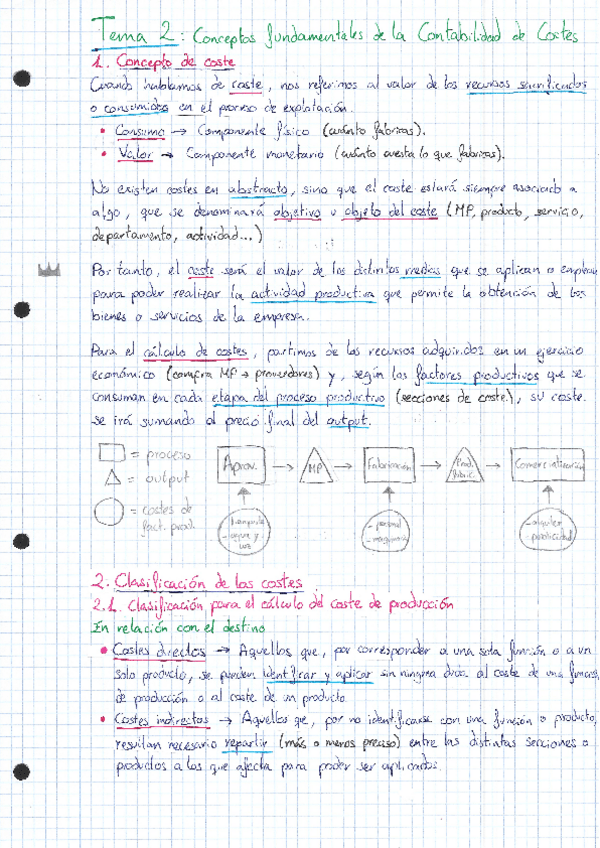 Tema 2: Conceptos fundamentales de la Contabilidad de Costes
1. Concepto de coste
Cuando hablamos de coste, nos referimos al valor de los recursos sacrificados
o consumidos en el proceso de explotación.
• Consumo → Componente físico (cuánto fabricas).
• Valor → Componente monetario (cuánto cuesta lo que fabricas).
No existen costes en abstracto, sino que el coste estará siempre asociado a
algo, que se denominará objetivo u objeto del coste (MP, producto, servicio,
departamento, actividad...)
Por tanto, el coste será el valor de los distintos medios que se aplican o emplean
para poder realizar la actividad productiva que permite la obtención de los
bienes o servicios de la empresa.
Para el cálculo de costes, partimos de los recursos adquiridos en un ejercicio
económico (compra MP → proveedores) y, según los factores productivos que se
consuman en cada etapa del proceso productivo (secciones de coste), su coste
se irá sumando al precio final del output.
= proceso
= output
= costes de
fact. prod.
Aprov. → MP → Fabricación → Prod. fabric. → Comercialización
- agua y
luz
- personal
- maquinaria
- alquiler
- publicidad
2. Clasificación de los costes
2.1. Clasificación para el cálculo del coste de producción
En relación con el destino
• Costes directos → Aquellos que, por corresponder a una sola función o a un
solo producto, se pueden identificar y aplicar sin ninguna duda al coste de una función
de producción o al coste de un producto.
• Costes indirectos → Aquellos que, por no identificarse con una función o producto,
resultan necesario repartir (más o menos preciso) entre las distintas secciones o
productos a los que afecta para poder ser aplicados.